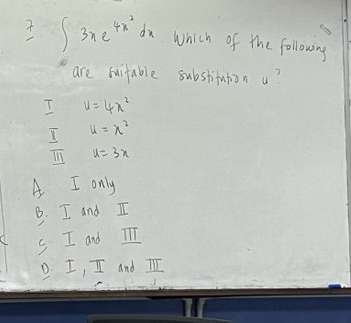 7 ∫ 3x e^{4x²} dx Which of the following
are suitable substitution u?
I u = 4x²
II u = x²
III u = 3x
A. I only
B. I and II
C. I and III
D. I, II and III